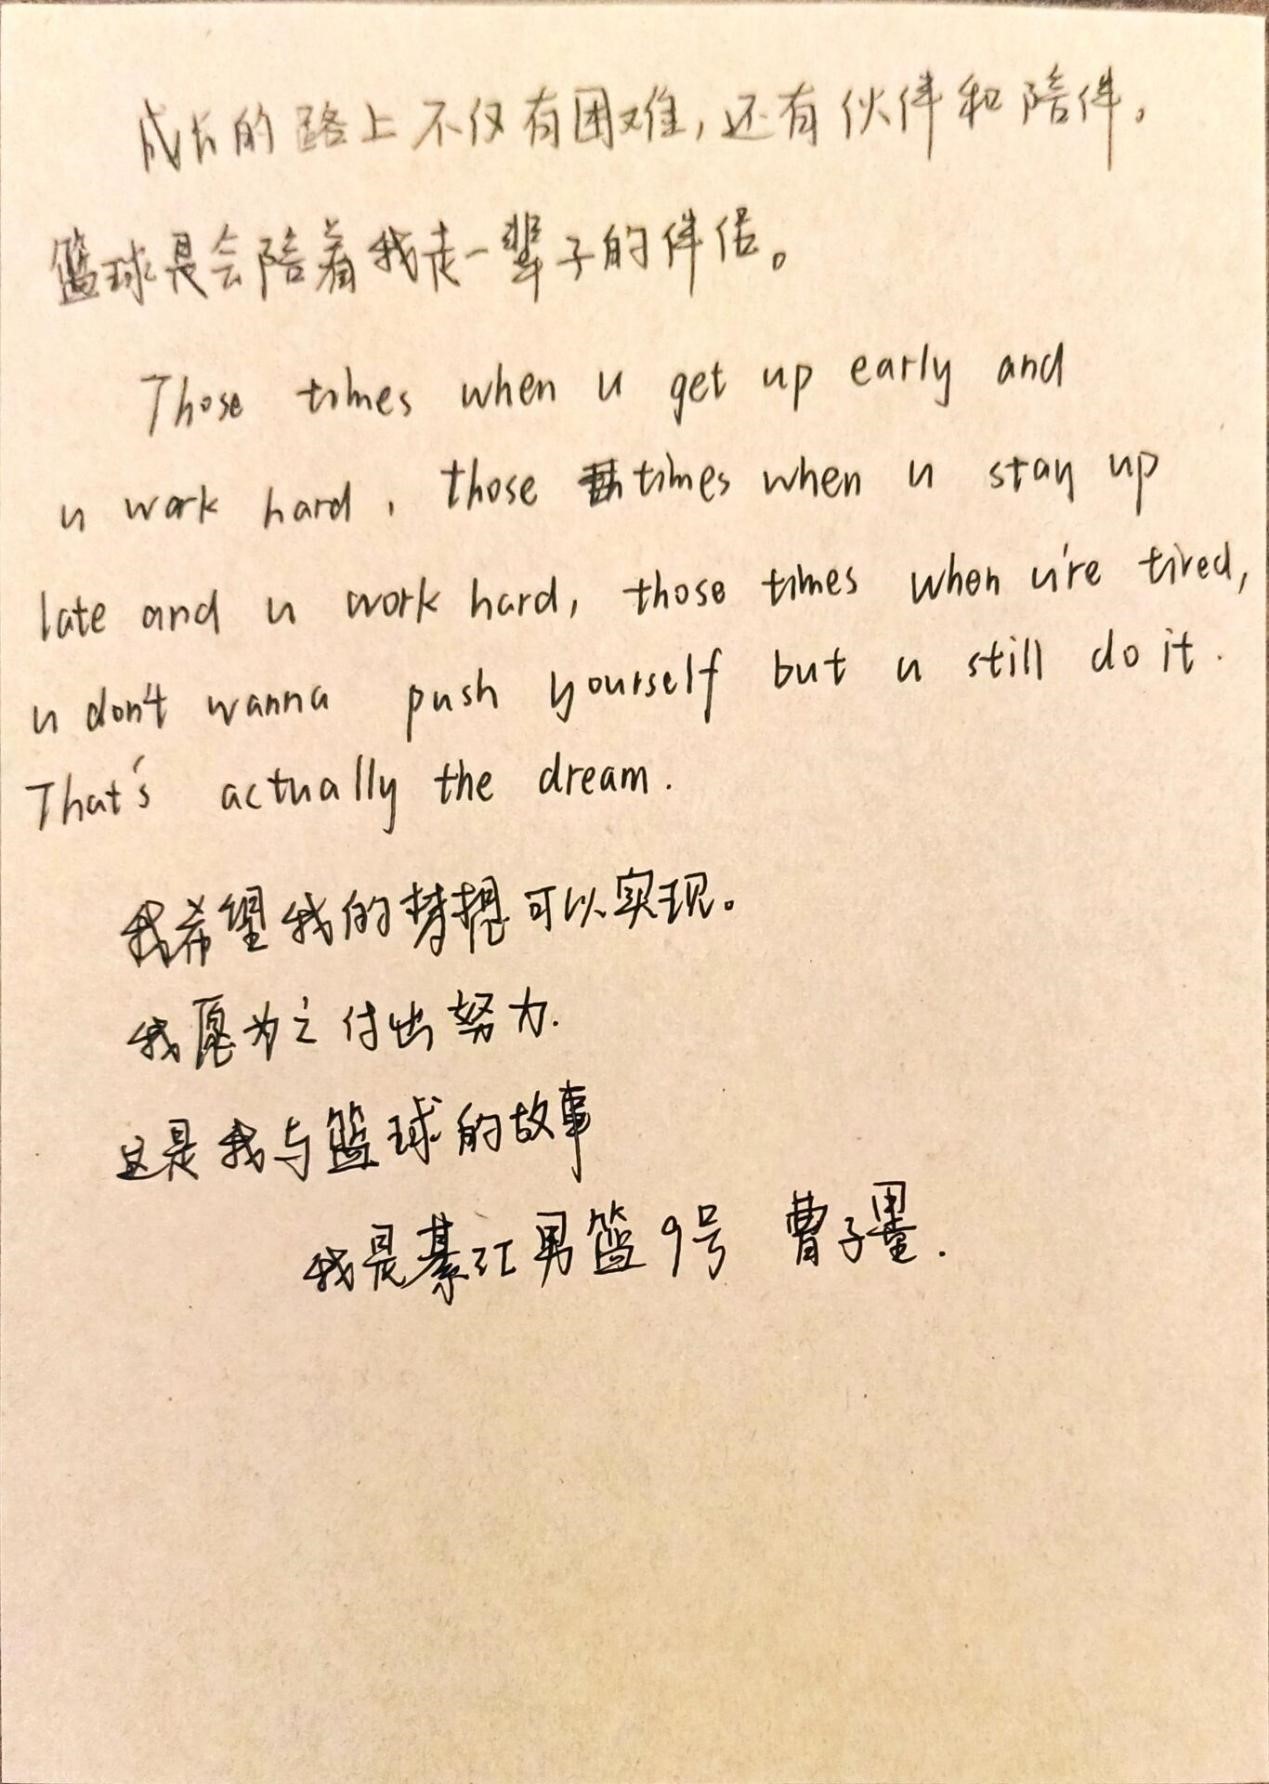 成长的路上不仅有困难,还有伙伴和陪伴。
篮球是会陪着我走一辈子的伴侣。
Those times when u get up early and
u work hard, those times when u stay up
late and u work hard, those times when u're tired,
u don't wanna push yourself but u still do it.
That's actually the dream.
我希望我的梦想可以实现。
我愿为之付出努力.
这是我与篮球的故事
我是綦江男篮9号 曹子墨.